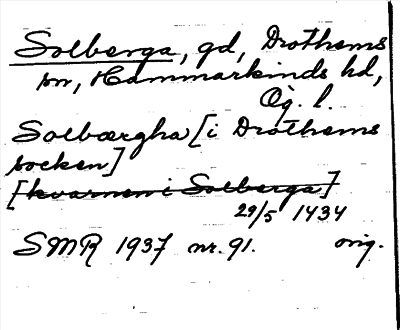 Solberga, gd, Drothems
sn, Hammarkinds hd,
Ög. l.
Solbærgha [i Drothems
socken]
[kvarnen i Solberga]
29/5 1434
SMR 1937 nr. 91. orig.